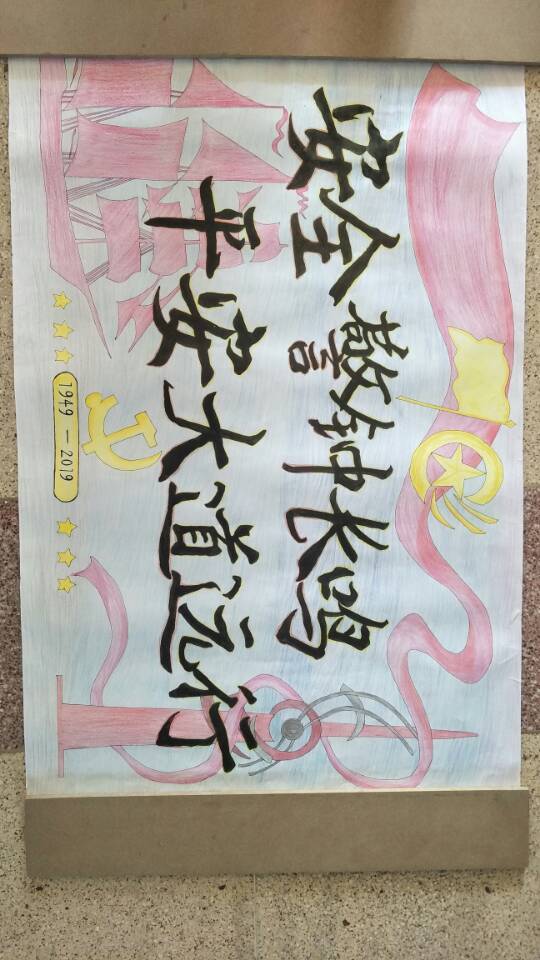 安全警钟长鸣
平安大道远行
1949-2019